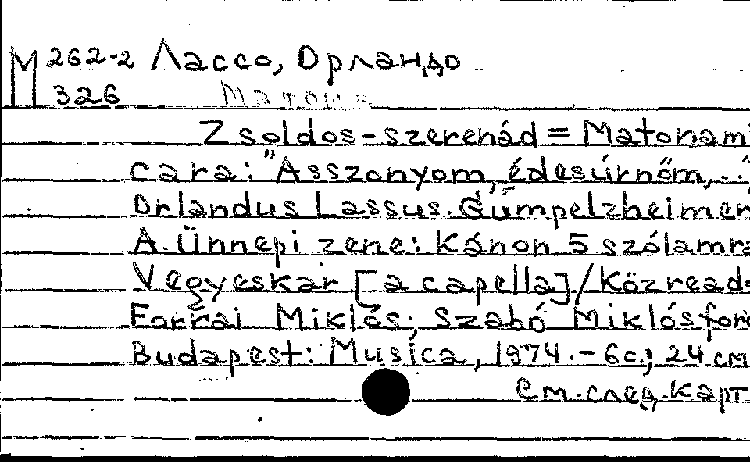 М 262-2 Лассо, Орландо
326 Матона
Zsoldos-szerenád = Matonami
cara: "Asszonyom, édesúrnőm,..
Orlandus Lassus. Gümpelzheimer
A. Ünnepi zene: Kánon 5 szólamra
Vegyeskar [a capella] / Közread.
Forrai Miklós; Szabó Miklós ford
Budapest: Musica, 1974. - 6 с.; 24 см
См. след. карт